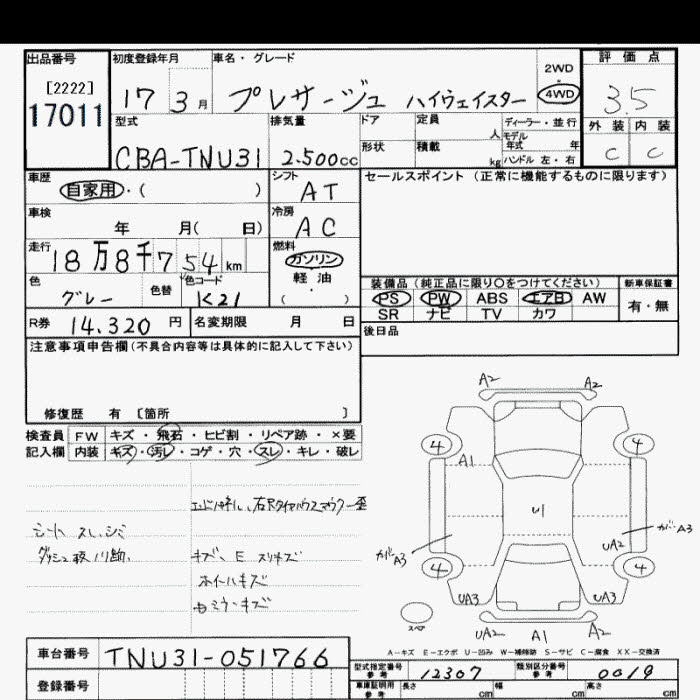 出品番号 初度登録年月 車名・グレード 2WD 評価点
[2222] 17011 17 3月 プレサージュ ハイウェイスター ・ 4WD 3.5
型式 排気量 ドア 定員 人 ディーラー・並行 外装 内装
モデル年式 年
CBA-TNU31 2.500cc 形状 積載 kg ハンドル 左・右 C C
車歴 自家用・( ) シフト AT セールスポイント(正常に機能するものに限ります)
車検 年 月( 日) 冷房 AC
走行 18万8千754km 燃料 ガソリン・軽油 ( )
色 グレー 色替 色コード K21
装備品(純正品に限り○をつけてください) 新車保証書
PS PW ABS エアB AW 有・無
SR ナビ TV カワ
R券 14.320円 名変期限 月 日 後日品
注意事項申告欄(不具合内容等は具体的に記入して下さい)
修復歴 有 [箇所 ]
検査員 FW キズ・飛石・ヒビ割・リペア跡・×要
記入欄 内装 キズ・汚レ・コゲ・穴・スレ・キレ・破レ
シート スレ、シミ
キズ、E スリキズ
ホイールキズ
A2 A2
4 4
A1
U1
カバーA3 UA2 カバーA3
4 4
UA3 UA3
スペア UA2 A1 UA2
A-キズ E-エクボ U-凹み W-補修跡 S-サビ C-腐食 XX-交換済
車台番号 TNU31-051766
型式指定番号 参考 12307 類別区分番号 参考 0019
登録番号 車庫証明用 参考 長さ cm 幅 cm 高さ cm